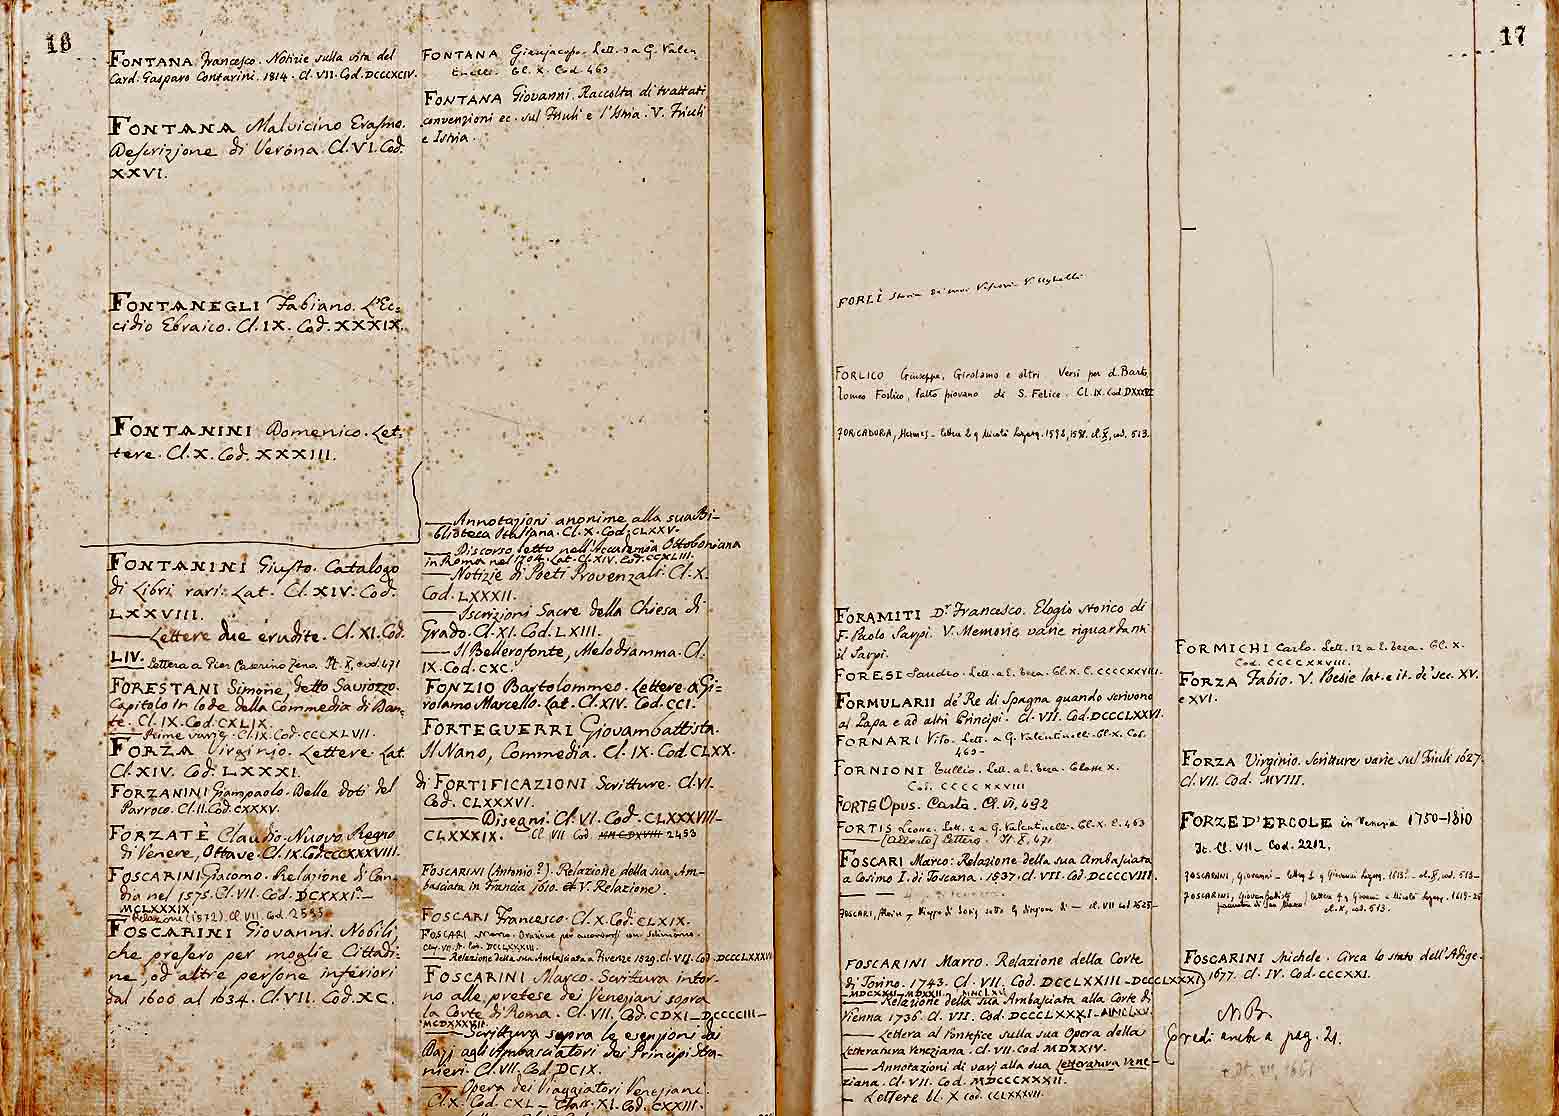 16
FONTANA Francesco. Notizie sulla vita del
Card. Gasparo Contarini. 1814. Cl. VII. Cod. DCCLXCIV.
FONTANA Malvicino Erasmo.
Descrizione di Verona. Cl. VI. Cod.
XXVI.
FONTANEGLI Fabiano. L'Ec-
cidio Ebraico. Cl. IX. Cod. XXXIX.
FONTANINI Domenico. Let-
tere. Cl. X. Cod. XXXIII.
FONTANINI Giusto. Catalogo
di Libri rari. Lat. Cl. XIV. Cod.
LXXVIII.
— Lettere due erudite. Cl. XI. Cod.
LIV. Lettera a Pier Caterino Zeno. It. X, cod. 471
FORESTANI Simone, detto Saviozzo.
Capitolo in lode della Commedia di Dan-
te. Cl. IX. Cod. CXLIX.
— Rime varie. Cl. IX. Cod. CCCXLVII.
FORZA Virginio. Lettere. Lat.
Cl. XIV. Cod. LXXXI.
FORZANINI Giampaolo. Delle doti del
Parroco. Cl. II. Cod. CXXXV.
FORZATÈ Claudio. Nuovo Regno
di Venere, Ottave. Cl. IX. Cod. CCCXXXVIII.
FOSCARINI Giacomo. Relazione di Can-
dia nel 1575. Cl. VII. Cod. DCXXXI.—
MCLXXXIX.
— Relazione (1572). Cl. VII. Cod. 2535
FOSCARINI Giovanni. Nobili,
che presero per moglie Cittadi-
ne, od altre persone inferiori
dal 1600 al 1634. Cl. VII. Cod. XC.
FONTANA Gianjacopo. Lett. 3 a G. Valen-
tinelli. Cl. X. Cod. 463
FONTANA Giovanni. Raccolta di trattati
convenzioni ec. sul Friuli e l'Istria. V. Friuli
e Istria.
— Annotazioni anonime alla sua Bi-
blioteca Italiana. Cl. X. Cod. CLXXV.
— Discorso letto nell'Accademia Ottoboniana
in Roma nel 1704. Lat. Cl. XIV. Cod. CCXLIII.
— Notizie di Poeti Provenzali. Cl. X.
Cod. LXXXII.
— Iscrizioni Sacre della Chiesa di
Grado. Cl. XI. Cod. LXIII.
— Il Bellerofonte, Melodramma. Cl.
IX. Cod. CXC.
FONZIO Bartolommeo. Lettere a Gi-
rolamo Marcello. Lat. Cl. XIV. Cod. CCI.
FORTEGUERRI Giovambattista.
Il Nano, Commedia. Cl. IX. Cod. CLXX.
di FORTIFICAZIONI Scritture. Cl. VI.
Cod. CLXXXVI.
— Disegni. Cl. VI. Cod. CLXXXVIII—
CLXXXIX. Cl. VII Cod. 2453
FOSCARINI (Antonio?). Relazione della sua Am-
basciata in Francia 1610. V. Relazione.
FOSCARI Francesco. Cl. X. Cod. CLXIX.
FOSCARI Marco. Orazione per accordarsi con Solimano.
— Relazione della sua Ambasciata a Firenze 1529. Cl. VII. Cod. DCCCLXXXVI
FOSCARINI Marco. Scrittura intor-
no alle pretese dei Veneziani sopra
la Corte di Roma. Cl. VII. Cod. CDXI—DCCCCIII—
MCDXXXVIII
— Scrittura sopra le esenzioni dai
Dazj agli Ambasciatori dei Principi Stra-
nieri. Cl. VII. Cod. DCIX.
— Opera dei Viaggiatori Veneziani.
Cl. X. Cod. CXL — Class. XI. Cod. CXXIII.
17
FORLÌ Storia dei suoi Vescovi. V. Ughelli
FORLICO Giuseppe, Girolamo e altri. Versi per d. Barto-
lomeo Forlico, fatto piovano di S. Felice. Cl. IX. Cod. DXXXVI
FORAMITI Dr. Francesco. Elogio storico di
F. Paolo Sarpi. V. Memorie varie riguardanti
il Sarpi.
FORESI Sandro. Lett. a E. Teza. Cl. X. C. CCCCXXVIII.
FORMULARII de' Re di Spagna quando scrivono
al Papa e ad altri Principi. Cl. VII. Cod. DCCCLXXVI.
FORNARI Vito. Lett. a G. Valentinelli. Cl. X. Cod.
463—
FORNIONI Tullio. Lett. a E. Teza. Classe X.
Cod. CCCCXXVIII
FORTE Opus. Carta. Cl. VI, 492
FORTIS Leone. Lett. 2 a G. Valentinelli. Cl. X. C. 463
— [Alberto] Lettera. It. X, 471
FOSCARI Marco: Relazione della sua Ambasciata
a Cosimo I. di Toscana. 1537. Cl. VII. Cod. DCCCCVIII.
FOSCARINI Marco. Relazione della Corte
di Torino. 1743. Cl. VII. Cod. DCCLXXIII—DCCCLXXXI
— Relazione della sua Ambasciata alla Corte di
Vienna 1736. Cl. VII. Cod. DCCCLXXXI—MNCLXV.
— Lettera al Pontefice sulla sua Opera della
Letteratura Veneziana. Cl. VII. Cod. MDXXIV.
— Annotazioni di varj alla sua Letteratura Vene-
ziana. Cl. VII. Cod. MDCCCXXXII.
— Lettere Cl. X Cod. CCLXXXVII.
FORMICHI Carlo. Lett. 12 a E. Teza. Cl. X.
Cod. CCCCXXVIII.
FORZA Fabio. V. Poesie lat. e it. de' sec. XV.
e XVI.
FORZA Virginio. Scritture varie sul Friuli 1627.
Cl. VII. Cod. MVIII.
FORZE D'ERCOLE in Venezia 1750-1810
It. Cl. VII — Cod. 2212.
FOSCARINI Michele. Circa lo stato dell'Adige.
1677. Cl. IV. Cod. CCCXXI.
NB.
Vedi anche a pag. 21.